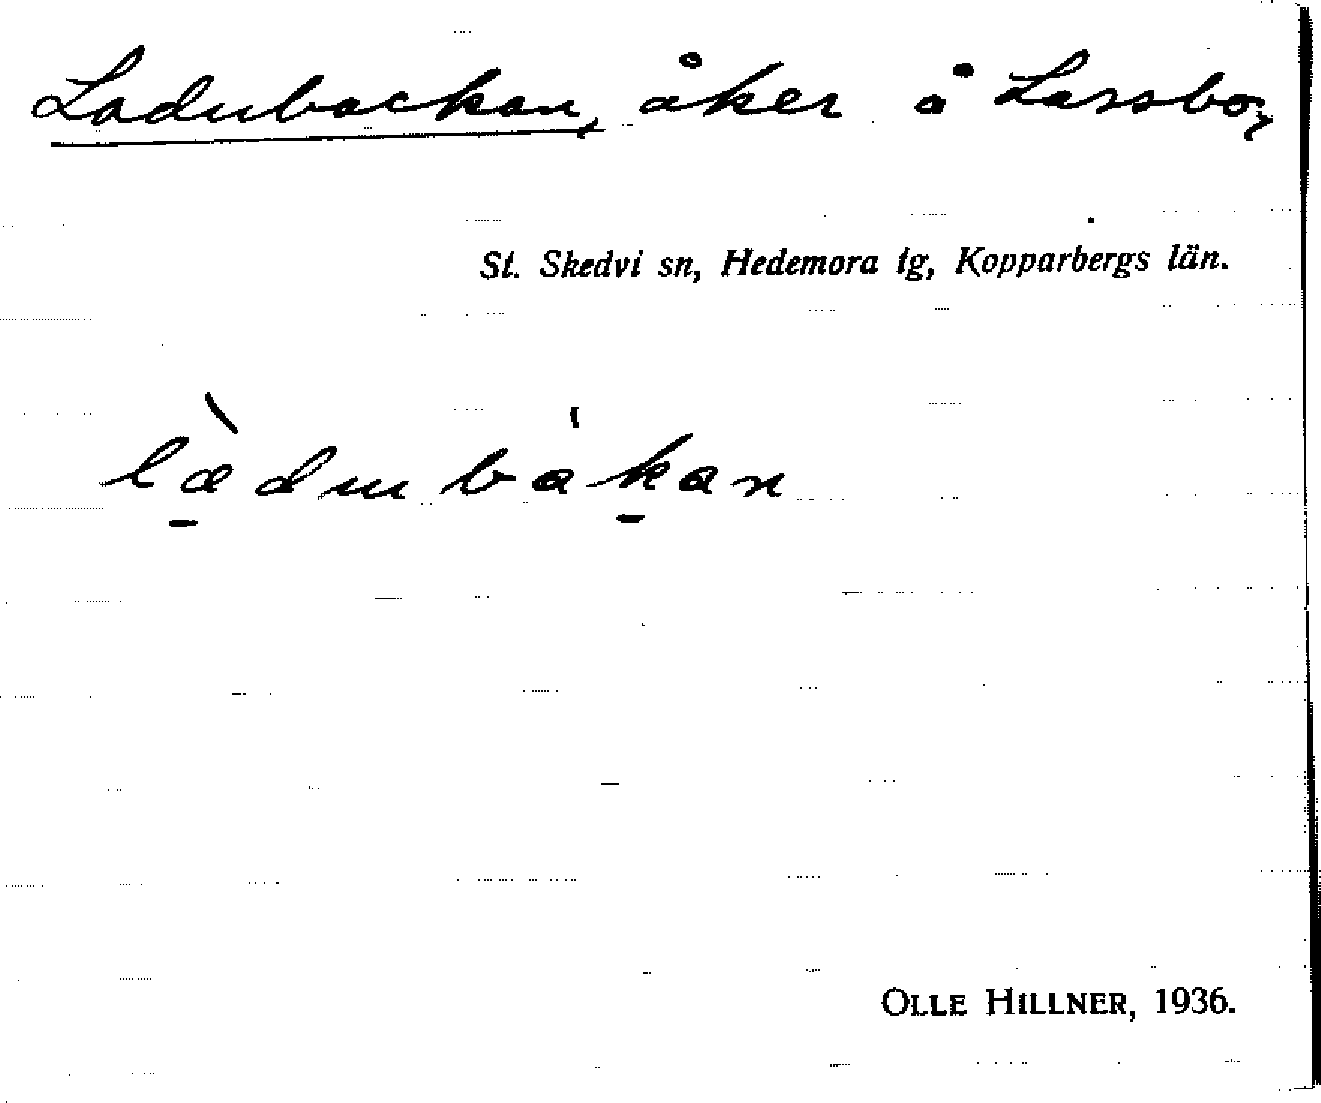 Ladubackan, åker å Larsbo,
St. Skedvi sn, Hedemora tg, Kopparbergs län.
OLLE HILLNER, 1936.